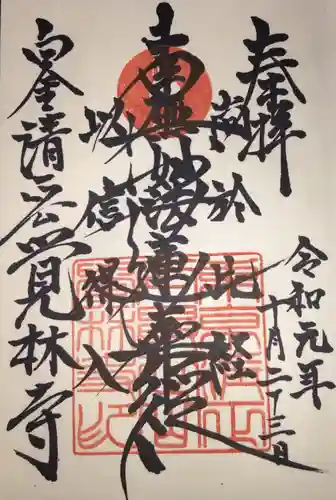 奉拝
令和元年
十月二十三日
尚於此経
南無妙法蓮華経
以信得入
白金清正公覚林寺